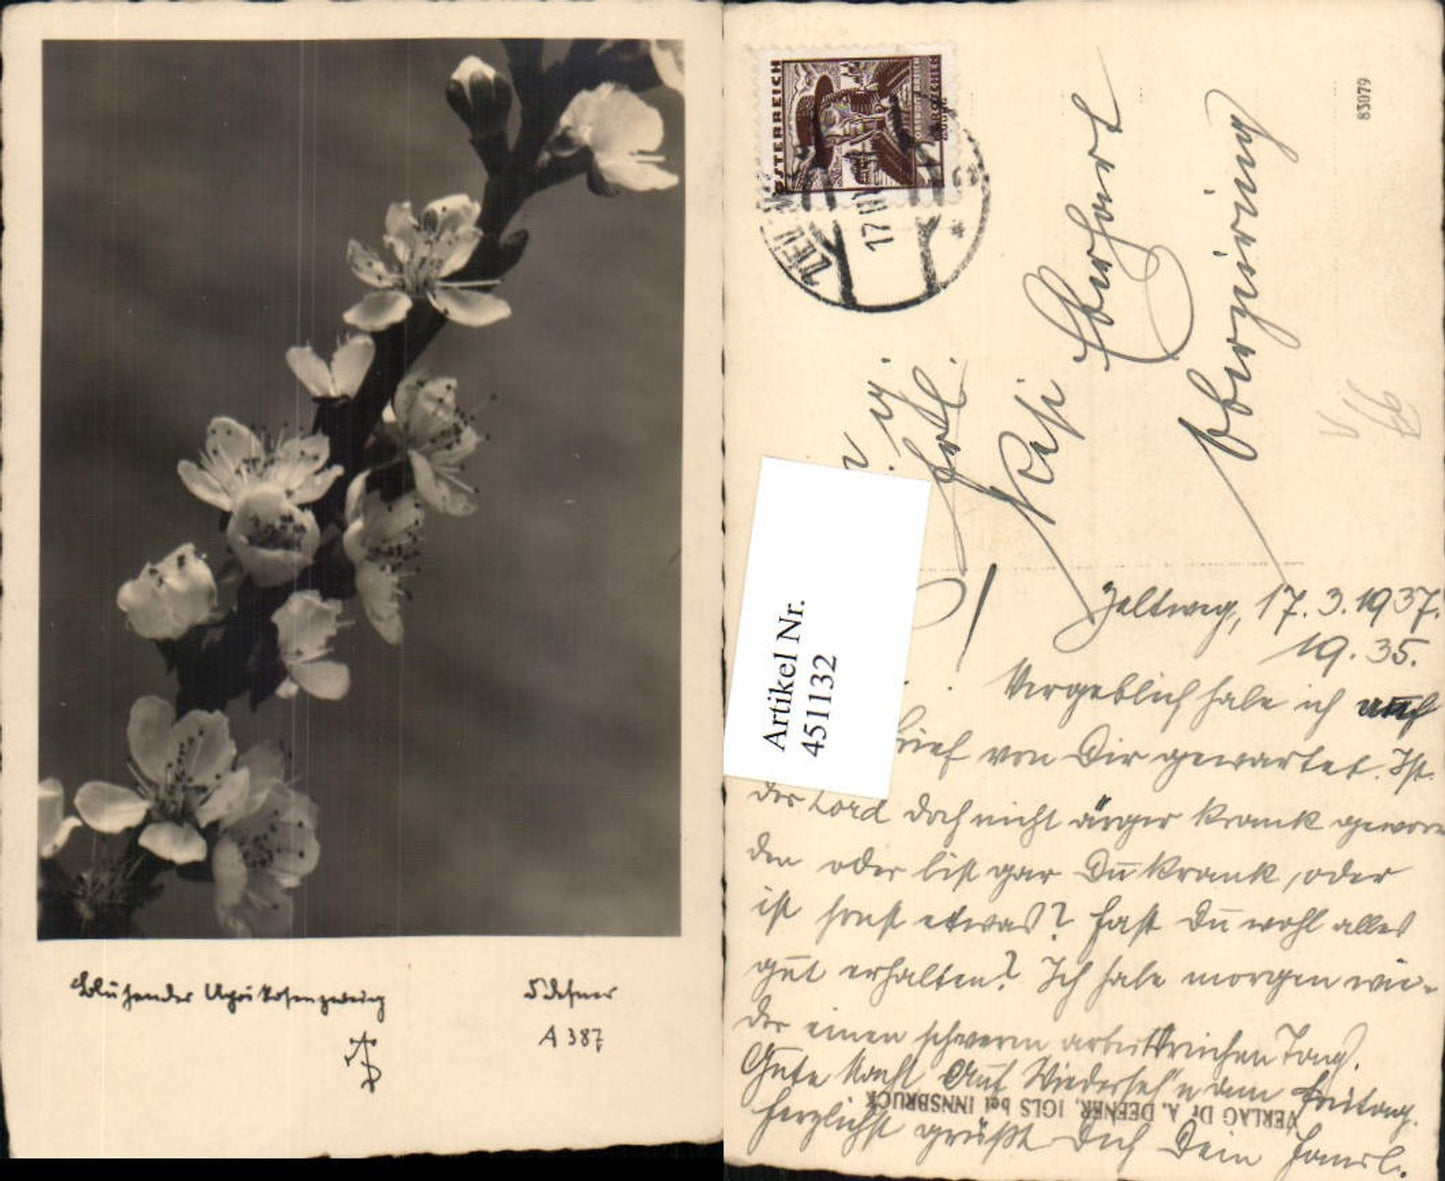 Blühender Aprikosenzweig
Defner
A 387
ÖSTERREICH
17 III
83079
Frl.
Resi Eberhart
Oberzeiring
Artikel Nr.
451132
Zeltweg, 17. 3. 1937.
19. 35.
Vergeblich habe ich auf
Brief von Dir gewartet. Ist
der Lord doch nicht ärger krank gewor
den oder bist gar Du krank, oder
ist sonst etwas? Hast Du wohl alles
gut erhalten? Ich habe morgen wie-
der einen schweren arbeitsreichen Tag.
Gute Nacht Auf Wiederseh'n am Freitag.
VERLAG Dr A. DEFNER, IGLS bei INNSBRUCK
Herzlichst grüßt Dich Dein